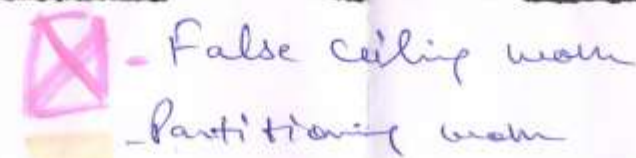 - False ceiling work
- Partitioning work